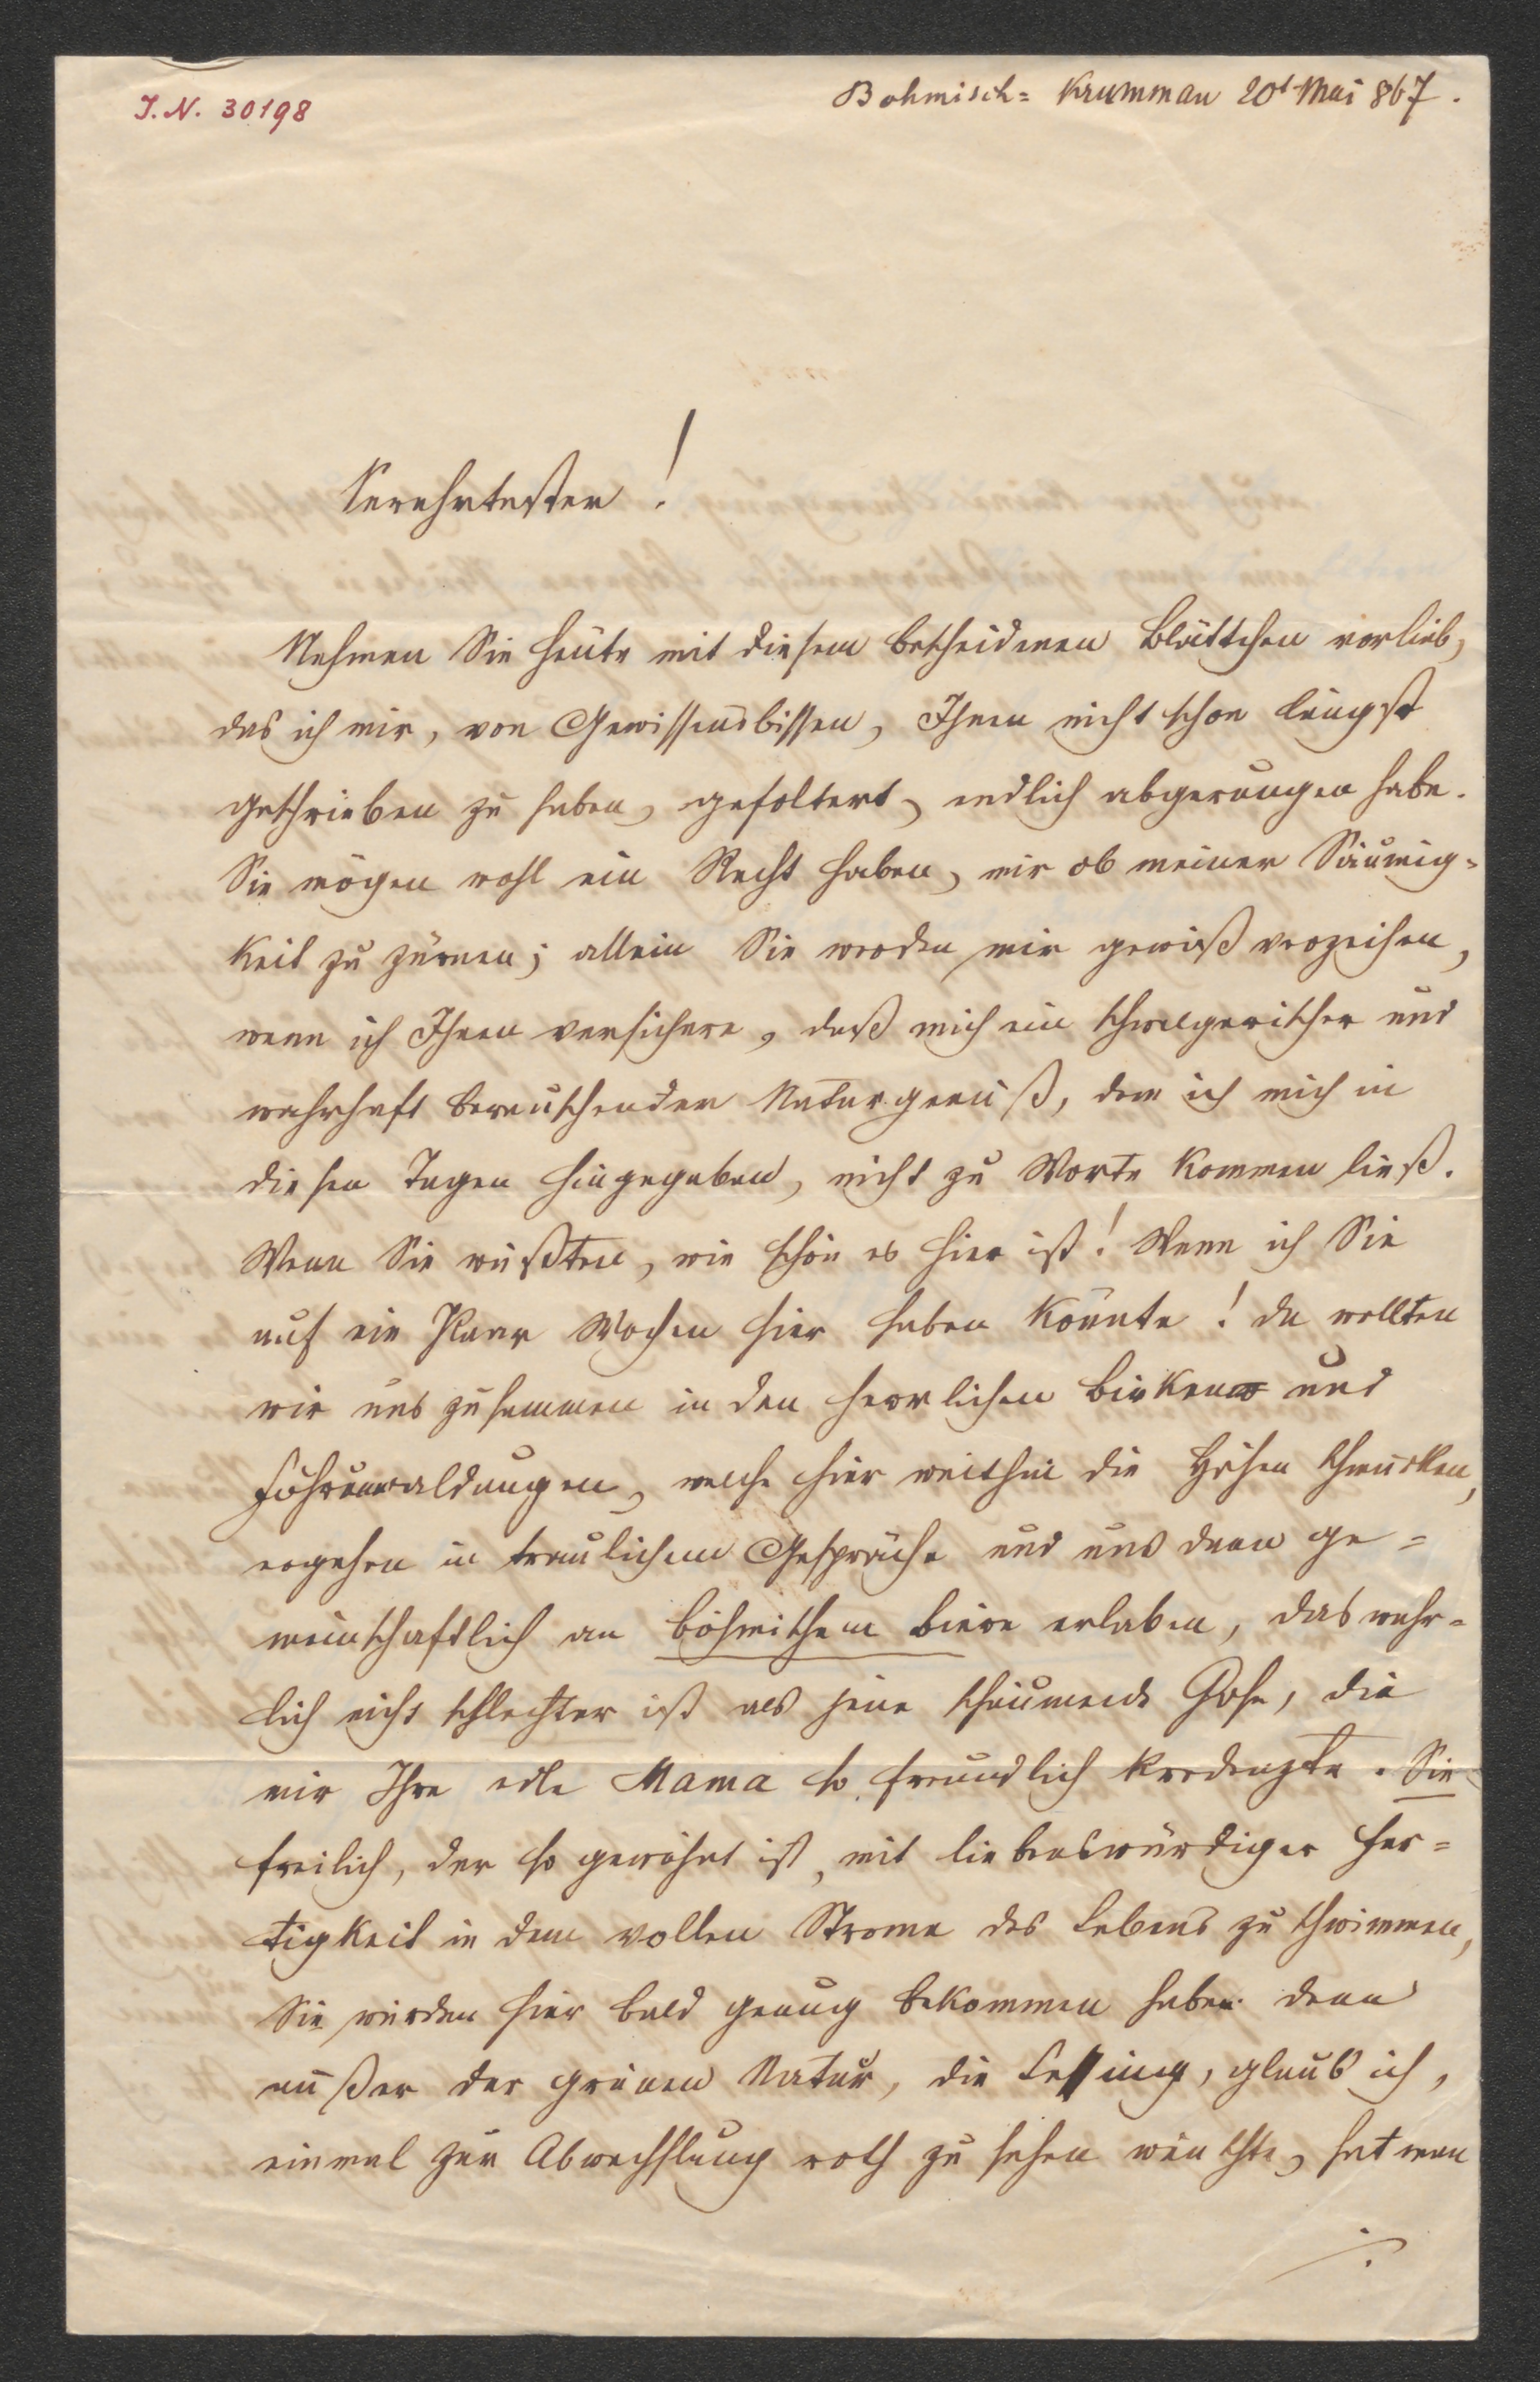 J. N. 30198
Bohmisch= Krummau 20t Mai 867.
Verehrtester!
Nehmen Sie heute mit diesem bescheidenen Blättchen vorlieb,
das ich mir, von Gewissensbissen, Ihnen nicht schon längst
geschrieben zu haben, gefoltert, endlich abgerungen habe.
Sie mögen wohl ein Recht haben, mir ob meiner Säumig=
keit zu zürnen; allein Sie werden mir gewiß verzeihen,
wenn ich Ihnen versichere, daß mich ein schwelgerischer und
wahrhaft berauschender Naturgenuß, dem ich mich in
diesen Tagen hingegeben, nicht zu Worte kommen ließ.
Wenn Sie wüßten, wie schön es hier ist! Wenn ich Sie
auf ein Paar Wochen hier haben könnte! da wollten
wir uns zusammen in den herrlichen Birken und
Föhrenwaldungen, welche hier weithin die Höhen schmücken,
ergehen in traulichem Gespräche und uns dann ge=
meinschaftlich an böhmischem Biere erlaben, das wahr=
lich nicht schlechter ist als jene schäumende Gose, die
mir Ihre edle Mama so freundlich kredenzte. Sie
freilich, der so gewöhnt ist, mit liebenswürdiger Fer=
tigkeit in dem vollen Strome des Lebens zu schwimmen,
Sie würden hier bald genug bekommen haben. denn
außer der grünen Natur, die Lessing, glaub ich,
einmal zur Abwechslung roth zu sehen wünschte, hat man
./.